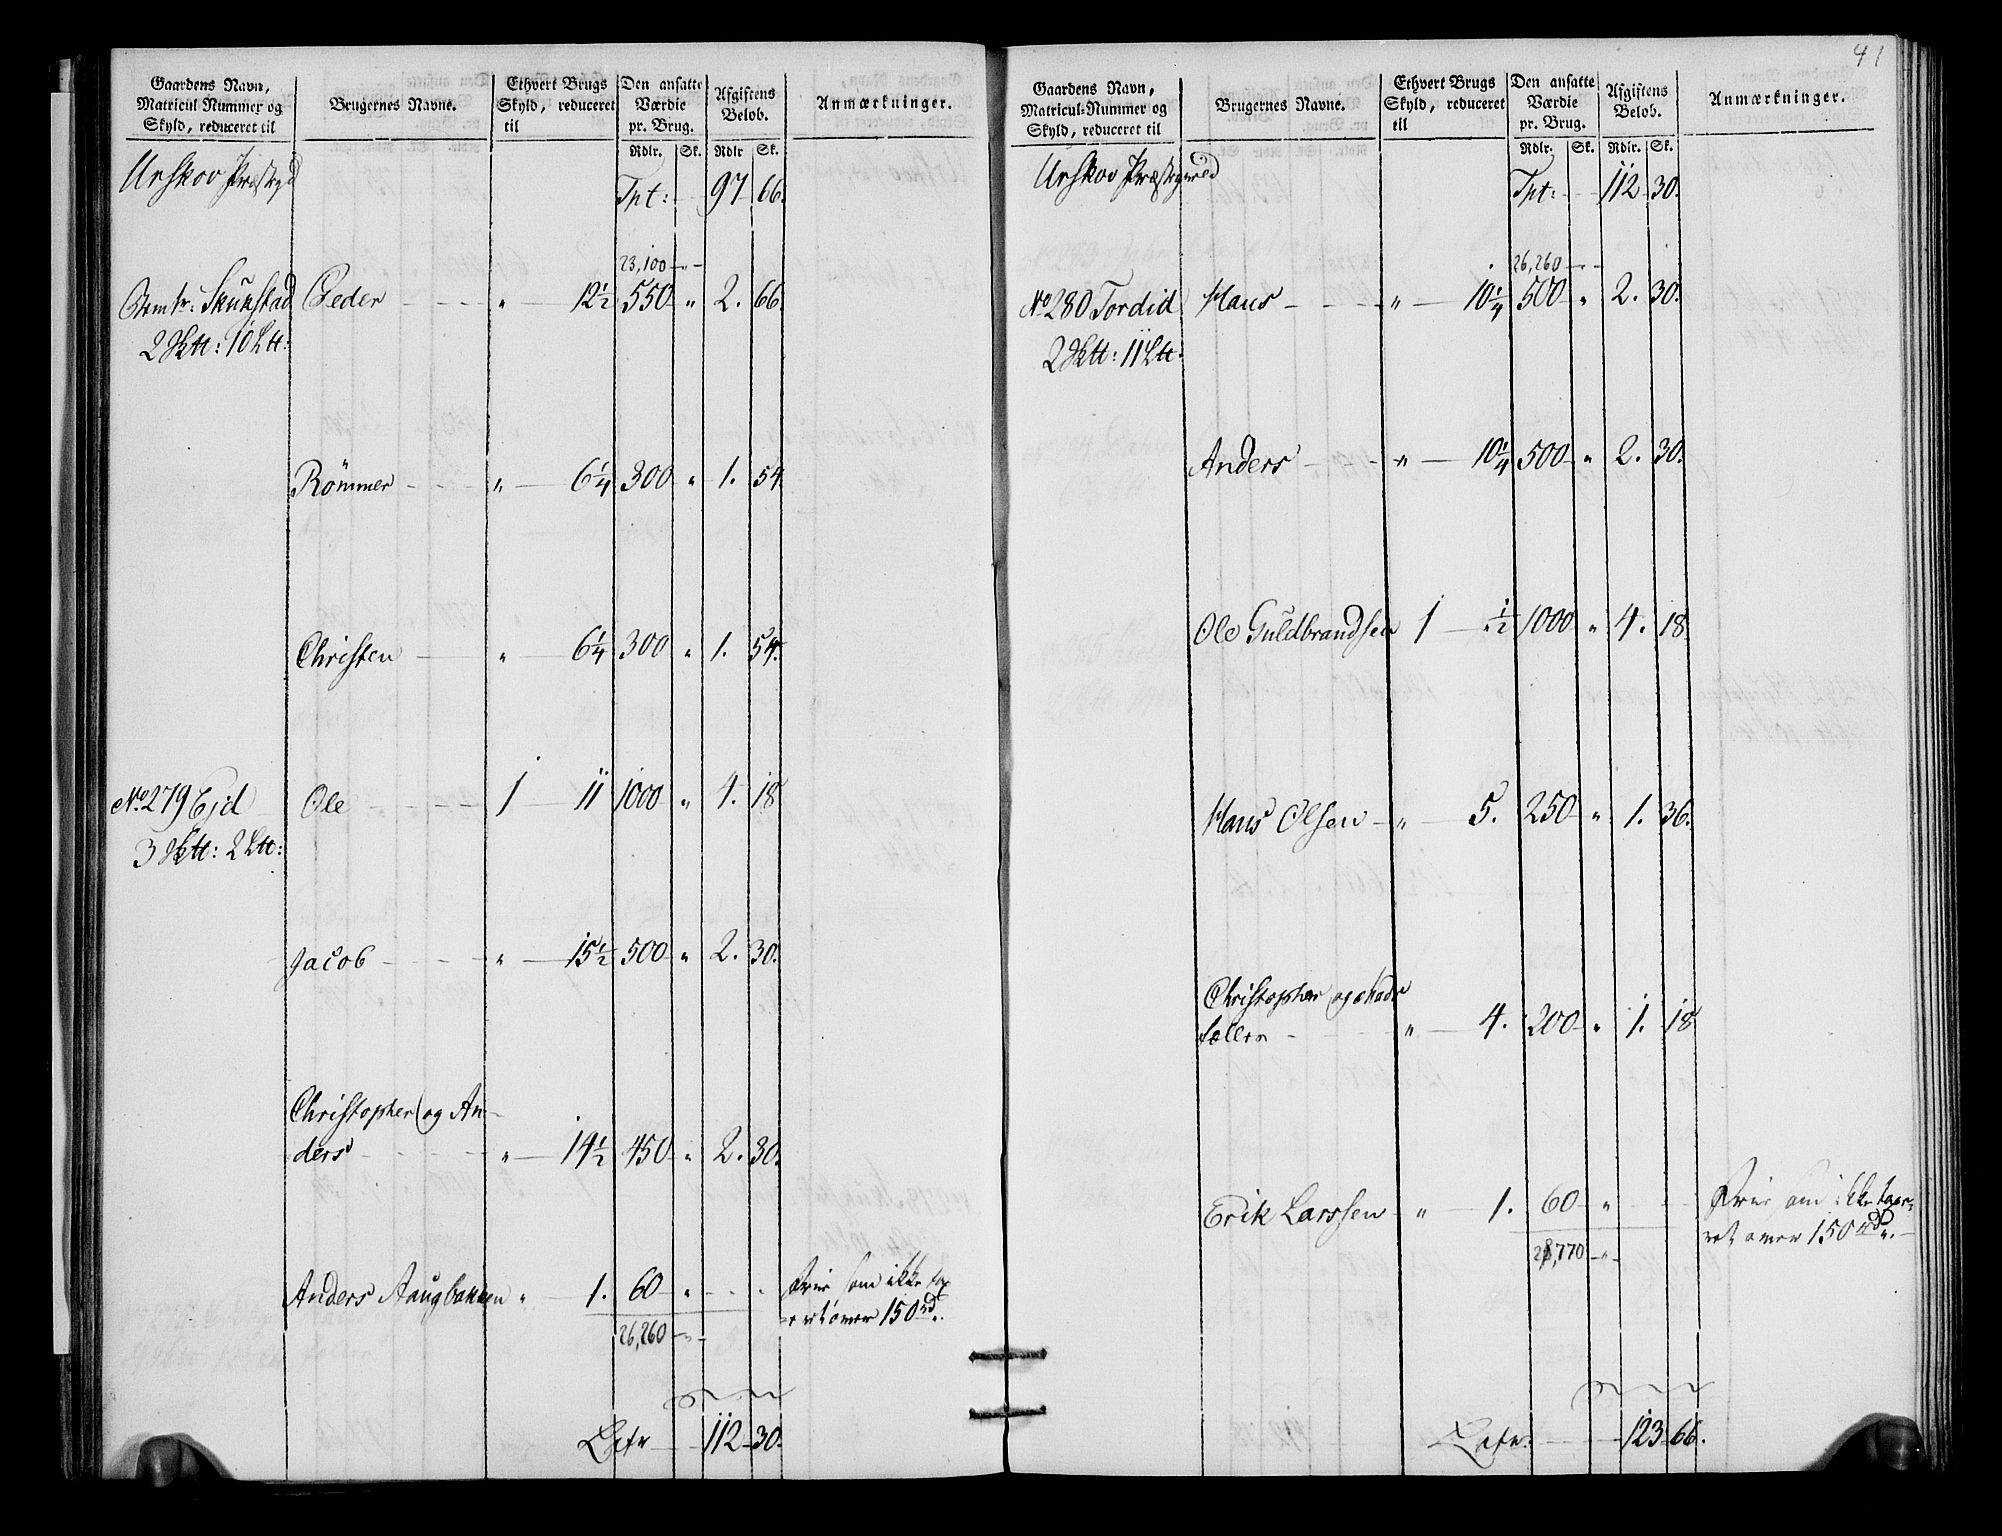 41
Gaardens Navn, Matricul Nummer og Skyld, reduceret til | Brugernes Navne. | Ethvert Brugs Skyld, reduceret til | Den ansatte Værdie pr. Brug. | Afgiftens Beløb. | Anmærkninger.
Rdlr. Sk. Rdlr Sk.
Urskov Præstegd Tpt: 97 66.
23,100 " -
Skukstad Peder " 12½ 550 " 2. 66.
2 Sktt: 10 Ltt:
Römmer " 6¼ 300 " 1. 54.
Christen " 6¼ 300 " 1. 54.
No 279 Ejd Ole 1 11 1000 " 4. 18
3 Sktt: 2 Ltt:
Jacob " 15½ 500 " 2. 30.
Christopher og An-
ders " 14½ 450 " 2. 30.
Anders Aaugbakken " 1. 60 " Frie som ikke tax
eret over 150 rd.
26,260 " -
Latr 112 30.
Gaardens Navn, Matricul-Nummer og Skyld, reduceret til | Brugernes Navne. | Ethvert Brugs Skyld, reduceret til | Den ansatte Værdie pr. Brug. | Afgiftens Beløb. | Anmærkninger.
Rdlr. Sk. Rdlr. Sk.
Urskov Præstegield Tpt: 112 30.
26,260 " -
No 280 Tordid Hans " 10¼ 500 " 2. 30.
2 Sktt: 11 Ltt:
Anders " 10¼ 500 " 2. 30.
Ole Guldbrandsen 1 " ½ 1000 " 4. 18
Hans Olsen " 5. 250 " 1. 36.
Christopher og
" 4. 200 " 1. 18
Erik Larssen " 1. 60 " Frie om ikke taxe-
ret over 150 rd.
28,770 " -
Latr: 123 66.